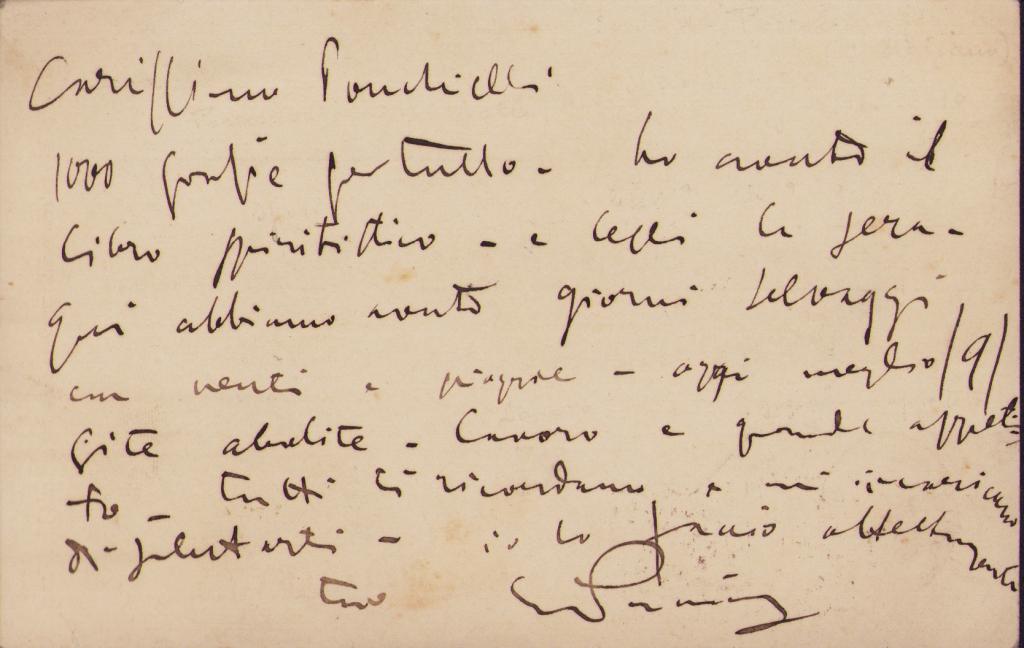 Carissimo Ponchielli
1000 grazie per tutto - ho avuto il
libro spiritistico - e leggi la sera -
Qui abbiamo avuto giorni selvaggi
con venti e piogge - oggi meglio (9)
gite abolite - Lavoro e grande appeti-
to - tutti ti ricordano e mi incaricano
di salutarti - io lo faccio affettuosamente
tuo GPuccini